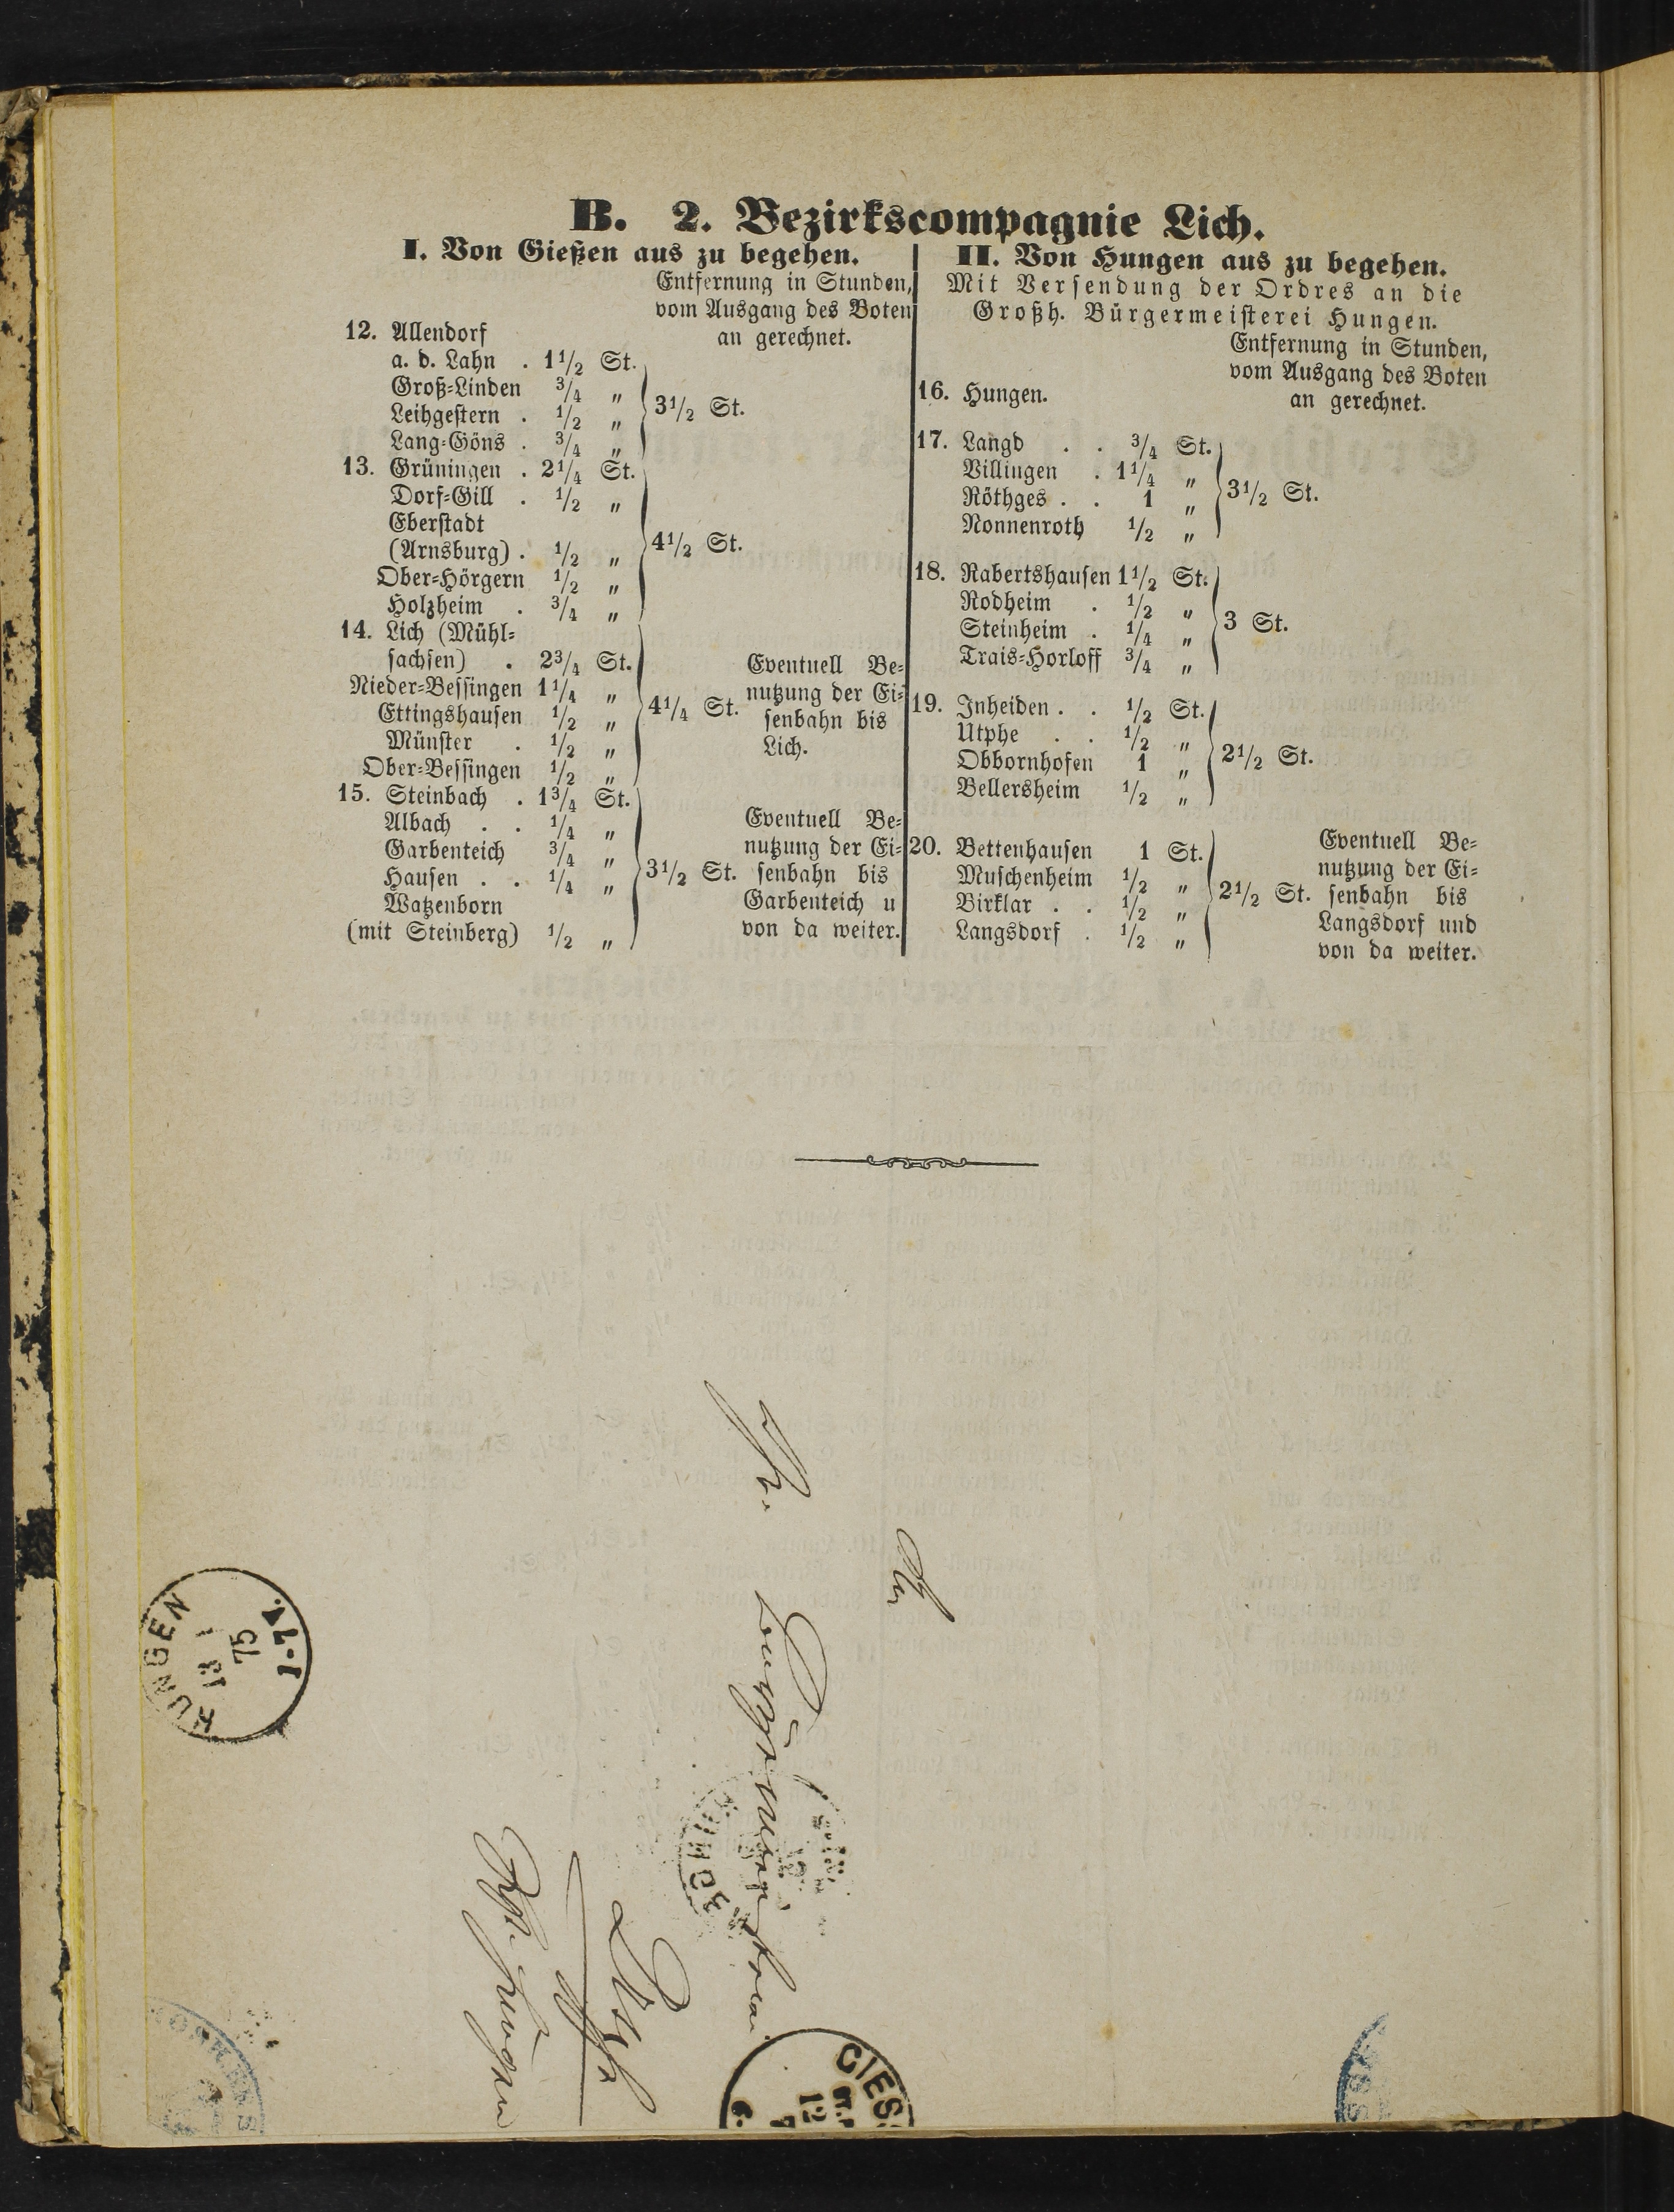 B. 2. Bezirkscompagnie Lich.
I. Von Gießen aus zu begehen.
Entfernung in Stunden,
vom Ausgang des Boten
an gerechnet.
12. Allendorf
a. d. Lahn . 1 1/2 St.
Groß-Linden 3/4 „
Leihgestern . 1/2 „
Lang-Göns . 3/4 „
3 1/2 St.
13. Grüningen . 2 1/4 St.
Dorf-Gill . 1/2 „
Eberstadt
(Arnsburg) . 1/2 „
Ober-Hörgern 1/2 „
Holzheim . 3/4 „
4 1/2 St.
14. Lich (Mühl-
sachsen) . 2 3/4 St.
Nieder-Bessingen 1 1/4 „
Ettingshausen 1/2 „
Münster . 1/2 „
Ober-Bessingen 1/2 „
4 1/4 St.
Eventuell Be-
nutzung der Ei-
senbahn bis
Lich.
15. Steinbach . 1 3/4 St.
Albach . . 1/4 „
Garbenteich 3/4 „
Hausen . . 1/4 „
Watzenborn
(mit Steinberg) 1/2 „
3 1/2 St.
Eventuell Be-
nutzung der Ei-
senbahn bis
Garbenteich u
von da weiter.
II. Von Hungen aus zu begehen.
Mit Versendung der Ordres an die
Großh. Bürgermeisterei Hungen.
Entfernung in Stunden,
vom Ausgang des Boten
an gerechnet.
16. Hungen.
17. Langd . . 3/4 St.
Villingen . 1 1/4 „
Röthges . . 1 „
Nonnenroth 1/2 „
3 1/2 St.
18. Rabertshausen 1 1/2 St.
Rodheim . 1/2 „
Steinheim . 1/4 „
Trais-Horloff 3/4 „
3 St.
19. Inheiden . . 1/2 St.
Utphe . . 1/2 „
Obbornhofen 1 „
Bellersheim 1/2 „
2 1/2 St.
20. Bettenhausen 1 St.
Muschenheim 1/2 „
Birklar . . 1/2 „
Langsdorf . 1/2 „
2 1/2 St.
Eventuell Be-
nutzung der Ei-
senbahn bis
Langsdorf und
von da weiter.
An
Gr. Bürgermeisterei
Utphe
HUNGEN
13 1
75
GIES
12